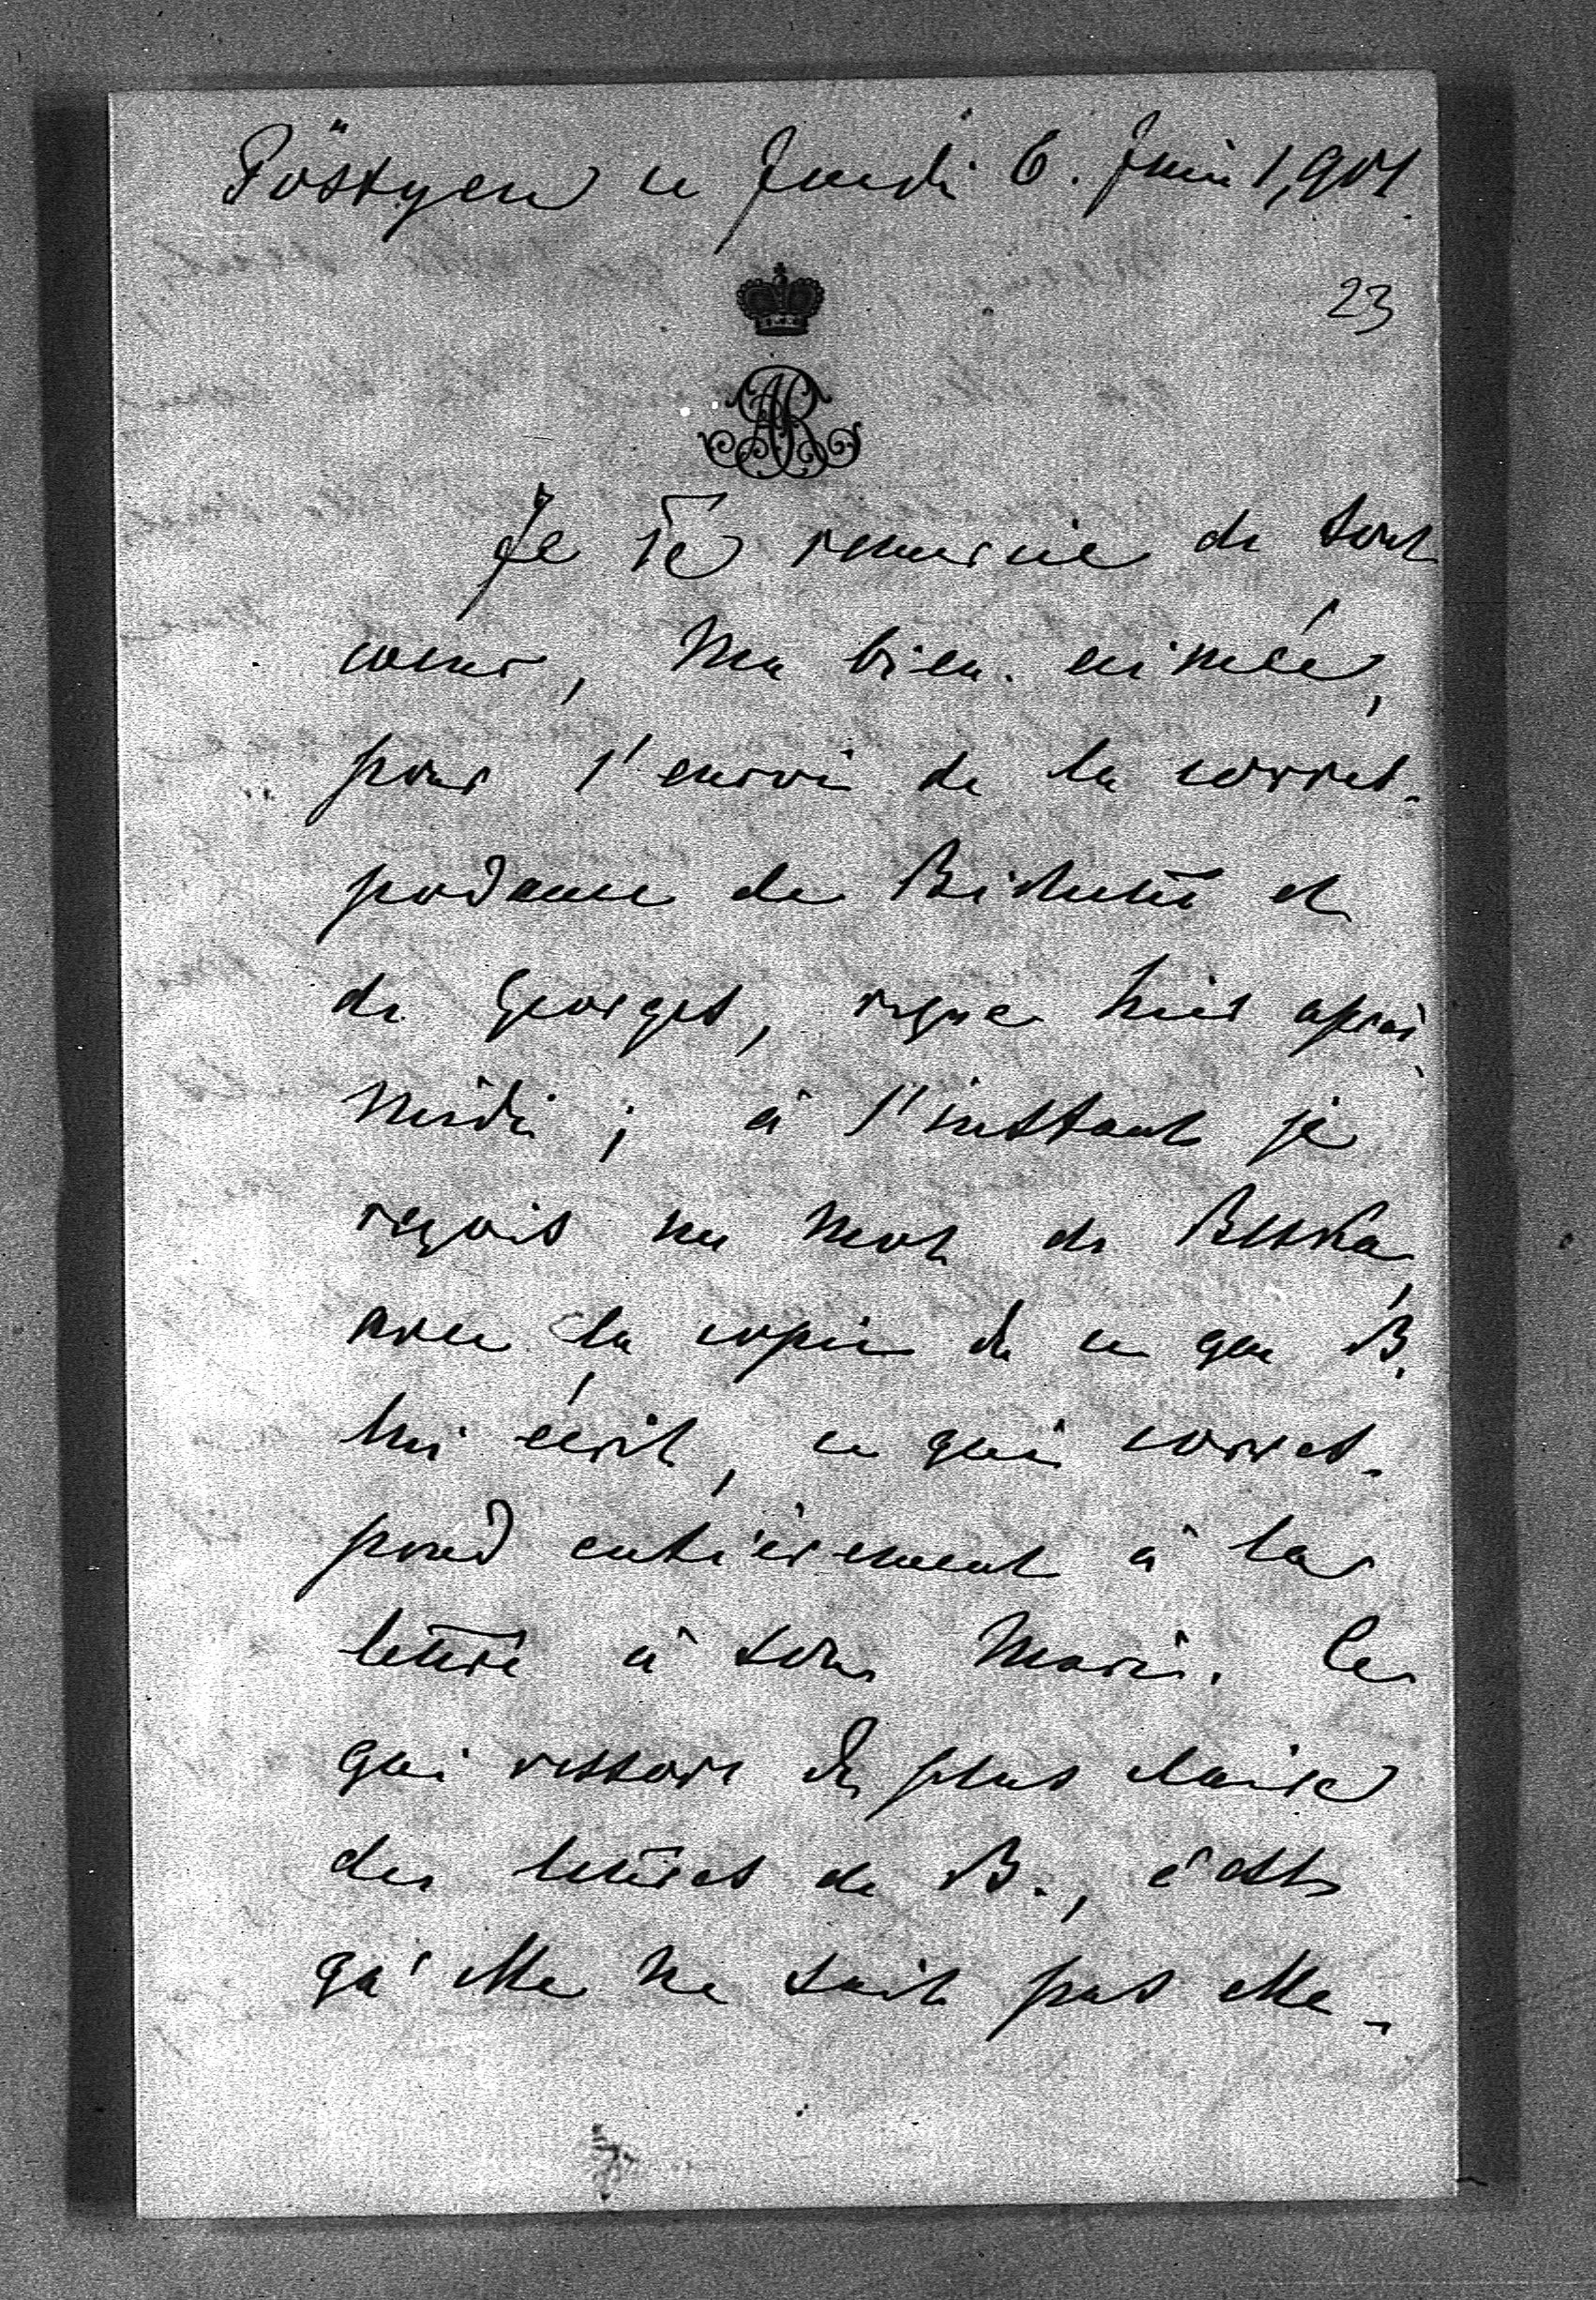 Pöstyen ce Jeudi 6. Juin 1,901.
23
AR
Je Te remercie de tout
coeur, Ma bien. aimée,
pour l'envoi de la corres-
podance de Bichette et
de Georges, reçue hier après
Midi ; à l'instant je
reçois un mot de
avec la copie de ce que B.
lui écrit, ce qui corres-
pond entièrement à la
lettre à son Mari. Ce
qui ressort de plus claire
des lettres de B., c'est
qu'elle ne sait pas elle-